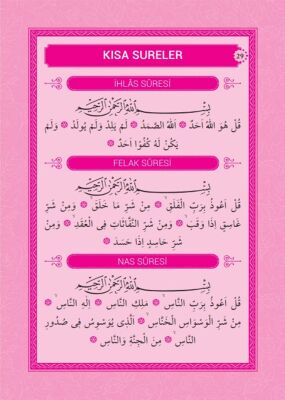 KISA SURELER
29
İHLÂS SÛRESİ
بِسْمِ اللّٰهِ الرَّحْمٰنِ الرَّحِيمِ
قُلْ هُوَ اللّٰهُ اَحَدٌ ❁ اَللّٰهُ الصَّمَدُ ❁ لَمْ يَلِدْ وَلَمْ يُولَدْ ❁ وَلَمْ
يَكُنْ لَهُ كُفُوًا اَحَدٌ ❁
FELAK SÛRESİ
بِسْمِ اللّٰهِ الرَّحْمٰنِ الرَّحِيمِ
قُلْ اَعُوذُ بِرَبِّ الْفَلَقِ ❁ مِنْ شَرِّ مَا خَلَقَ ❁ وَمِنْ شَرِّ
غَاسِقٍ اِذَا وَقَبَ ❁ وَمِنْ شَرِّ النَّفَّاثَاتِ فِى الْعُقَدِ ❁ وَمِنْ
شَرِّ حَاسِدٍ اِذَا حَسَدَ ❁
NAS SÛRESİ
بِسْمِ اللّٰهِ الرَّحْمٰنِ الرَّحِيمِ
قُلْ اَعُوذُ بِرَبِّ النَّاسِ ❁ مَلِكِ النَّاسِ ❁ اِلٰهِ النَّاسِ ❁
مِنْ شَرِّ الْوَسْوَاسِ الْخَنَّاسِ ❁ اَلَّذِى يُوَسْوِسُ فِى صُدُورِ
النَّاسِ ❁ مِنَ الْجِنَّةِ وَالنَّاسِ ❁